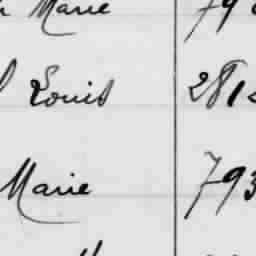 Marie 79
Louis 281
Marie 793